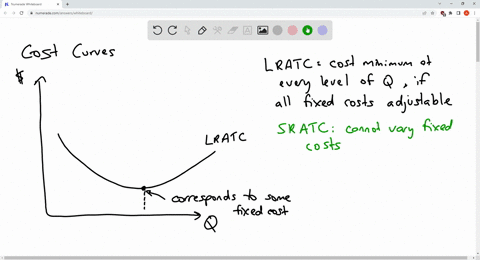 Cost Curves
$
LRATC
corresponds to some
fixed cost
Q
LRATC = cost minimum at
every level of Q , if
all fixed costs adjustable
SRATC: cannot vary fixed
costs